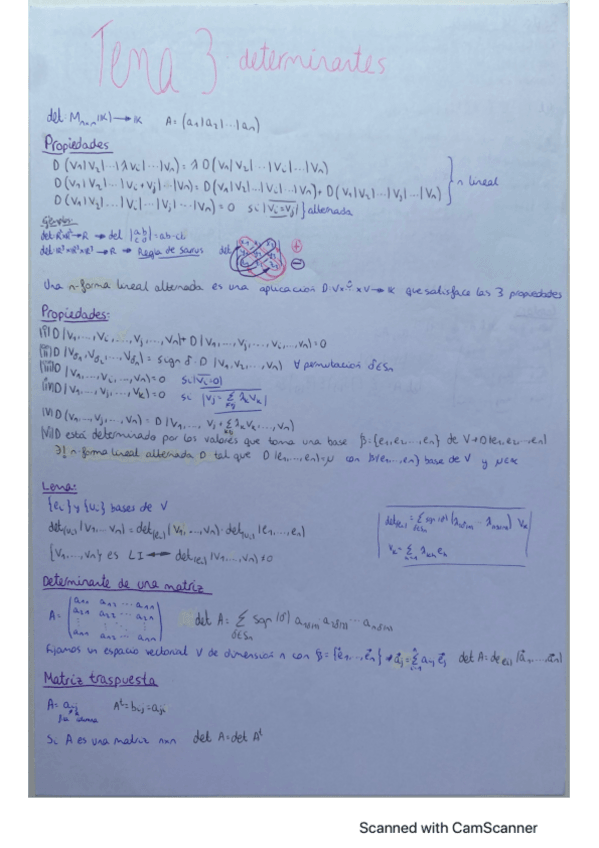 Tema 3: determinantes
det: Mₙₓₙ(K) → K   A = (a₁|a₂|...|aₙ)
Propiedades
D(v₁|v₂|...|λvᵢ|...|vₙ) = λ D(v₁|v₂|...|vᵢ|...|vₙ)
D(v₁|v₂|...|vᵢ+vⱼ|...|vₙ) = D(v₁|v₂|...|vᵢ|...|vₙ) + D(v₁|v₂|...|vⱼ|...|vₙ) } n lineal
D(v₁|v₂|...|vᵢ|...|vⱼ|...|vₙ) = 0 si |vᵢ=vⱼ| } alternada
Ejemplo:
det R²×R² → R → det |a b| = ab-cb
c d
det R³×R³×R³ → R → Regla de Sarrus det + -
Una n-forma lineal alternada es una aplicación D: V× ⁿ... ×V → K que satisface las 3 propiedades
Propiedades:
(i) D(v₁,...,vᵢ,...,vⱼ,...,vₙ) + D(v₁,...,vⱼ,...,vᵢ,...,vₙ) = 0
(ii) D(v_δ₁, v_δ₂,...,v_δₙ) = sign δ · D(v₁,v₂,...,vₙ) ∀ permutación δ∈Sₙ
(iii) D(v₁,...,vᵢ,...,vₙ) = 0 si |vᵢ=0|
(iv) D(v₁,...,vⱼ,...,vₖ) = 0 si |vⱼ = Σ λₖvₖ|
(v) D(v₁,...,vⱼ,...,vₙ) = D(v₁,..., vⱼ + Σ λₖvₖ,...,vₙ)
(vi) D está determinado por los valores que toma una base β={e₁,e₂,...,eₙ} de V → D(e₁,e₂,...,eₙ)
∃! n-forma lineal alternada D tal que D(e₁,...,eₙ)=μ con β(e₁,...,eₙ) base de V y μ∈K
Lema:
{eᵢ} y {uᵢ} bases de V
det{uᵢ}(v₁,...,vₙ) = det{eᵢ}(v₁,...,vₙ) · det{uᵢ}(e₁,...,eₙ)
{v₁,...,vₙ} es LI ↔ det{eᵢ}(v₁,...,vₙ) ≠ 0
vₖ = Σ λₕₖ eₕ
Determinante de una matriz
A = (a₁₁ a₁₂ ... a₁ₙ
a₂₁ a₂₂ ... a₂ₙ
⋮ ⋮ ⋮
aₙ₁ aₙ₂ ... aₙₙ)
det A = Σ sgn(δ) a_δ(1)1 a_δ(2)2 ... a_δ(n)n
δ∈Sₙ
Fijamos un espacio vectorial V de dimensión n con β={e₁,...,eₙ} → aⱼ = Σ aᵢⱼ eᵢ det A = det{eᵢ}(a₁,...,aₙ)
Matriz traspuesta
A = aᵢⱼ   Aᵗ = bᵢⱼ = aⱼᵢ
Si A es una matriz n×n det A = det Aᵗ
Scanned with CamScanner